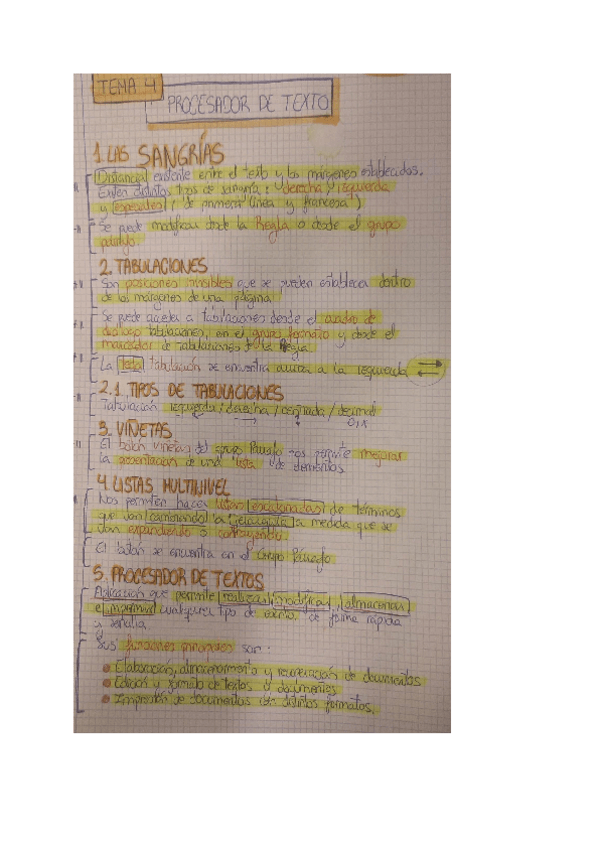 TEMA 4
PROCESADOR DE TEXTO
1. LAS SANGRÍAS
Distancia existente entre el texto y los márgenes establecidos.
Existen distintos tipos de sangría: derecha / izquierda
y especiales (de primera línea y francesa)
Se puede modificar desde la Regla o desde el grupo
párrafo.
2. TABULACIONES
Son posiciones invisibles que se pueden establecer dentro
de los márgenes de una página.
Se puede acceder a tabulaciones desde el cuadro de
diálogo tabulaciones, en el grupo formato y desde el
marcador de tabulaciones de la Regla.
La tecla tabulación se encuentra a la izquierda
2.1 TIPOS DE TABULACIONES
Tabulación izquierda / derecha / centrada / decimal
3. VIÑETAS
El botón viñetas del grupo Párrafo nos permite mejorar
la presentación de una lista de elementos
4. LISTAS MULTINIVEL
Nos permiten hacer listas escalonadas de términos
que van cambiando a medida que se
van expandiendo o contrayendo
El botón se encuentra en el Grupo Párrafo
5. PROCESADOR DE TEXTOS
Aplicación que permite realizar, modificar, almacenar
e imprimir cualquier tipo de escrito, de forma rápida
y sencilla
Sus funciones principales son:
Elaboración, almacenamiento y recuperación de documentos
Edición y formato de textos o documentos
Impresión de documentos con distintos formatos.